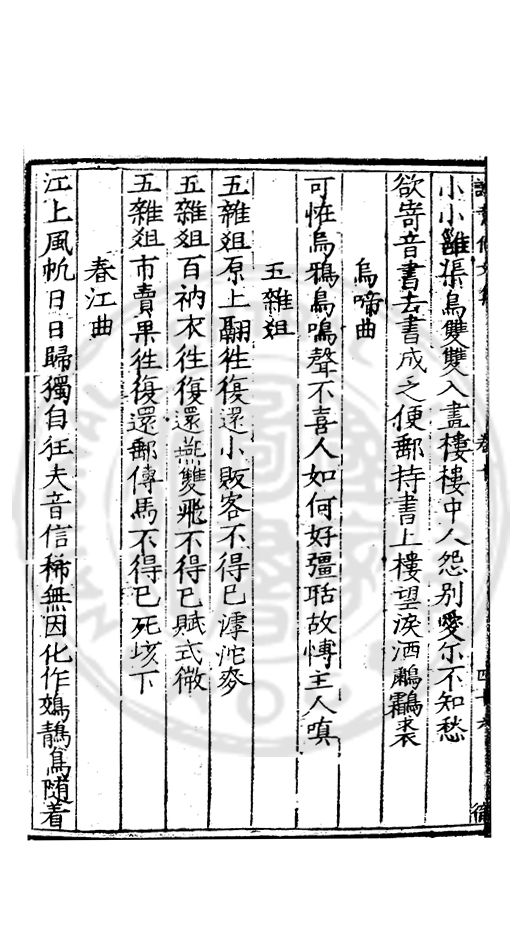 小小雞渠鳥雙雙入畫樓樓中人怨別愛尔不知愁
欲寄音書去書成乏便郵持書上樓望淚洒鷫鸘裘
烏啼曲
可恠烏鴉鳥鳴聲不喜人如何好彊聒故慱主人嗔
五雜俎
五雜俎原上翮徃復還小販客不得已滹沱麥
五雜俎百衲衣徃復還燕雙飛不得已賦式微
五雜俎市賣果徃復還郵傳馬不得已死垓下
春江曲
江上風帆日日歸獨自狂夫音信稀無因化作鵁鶄鳥随着